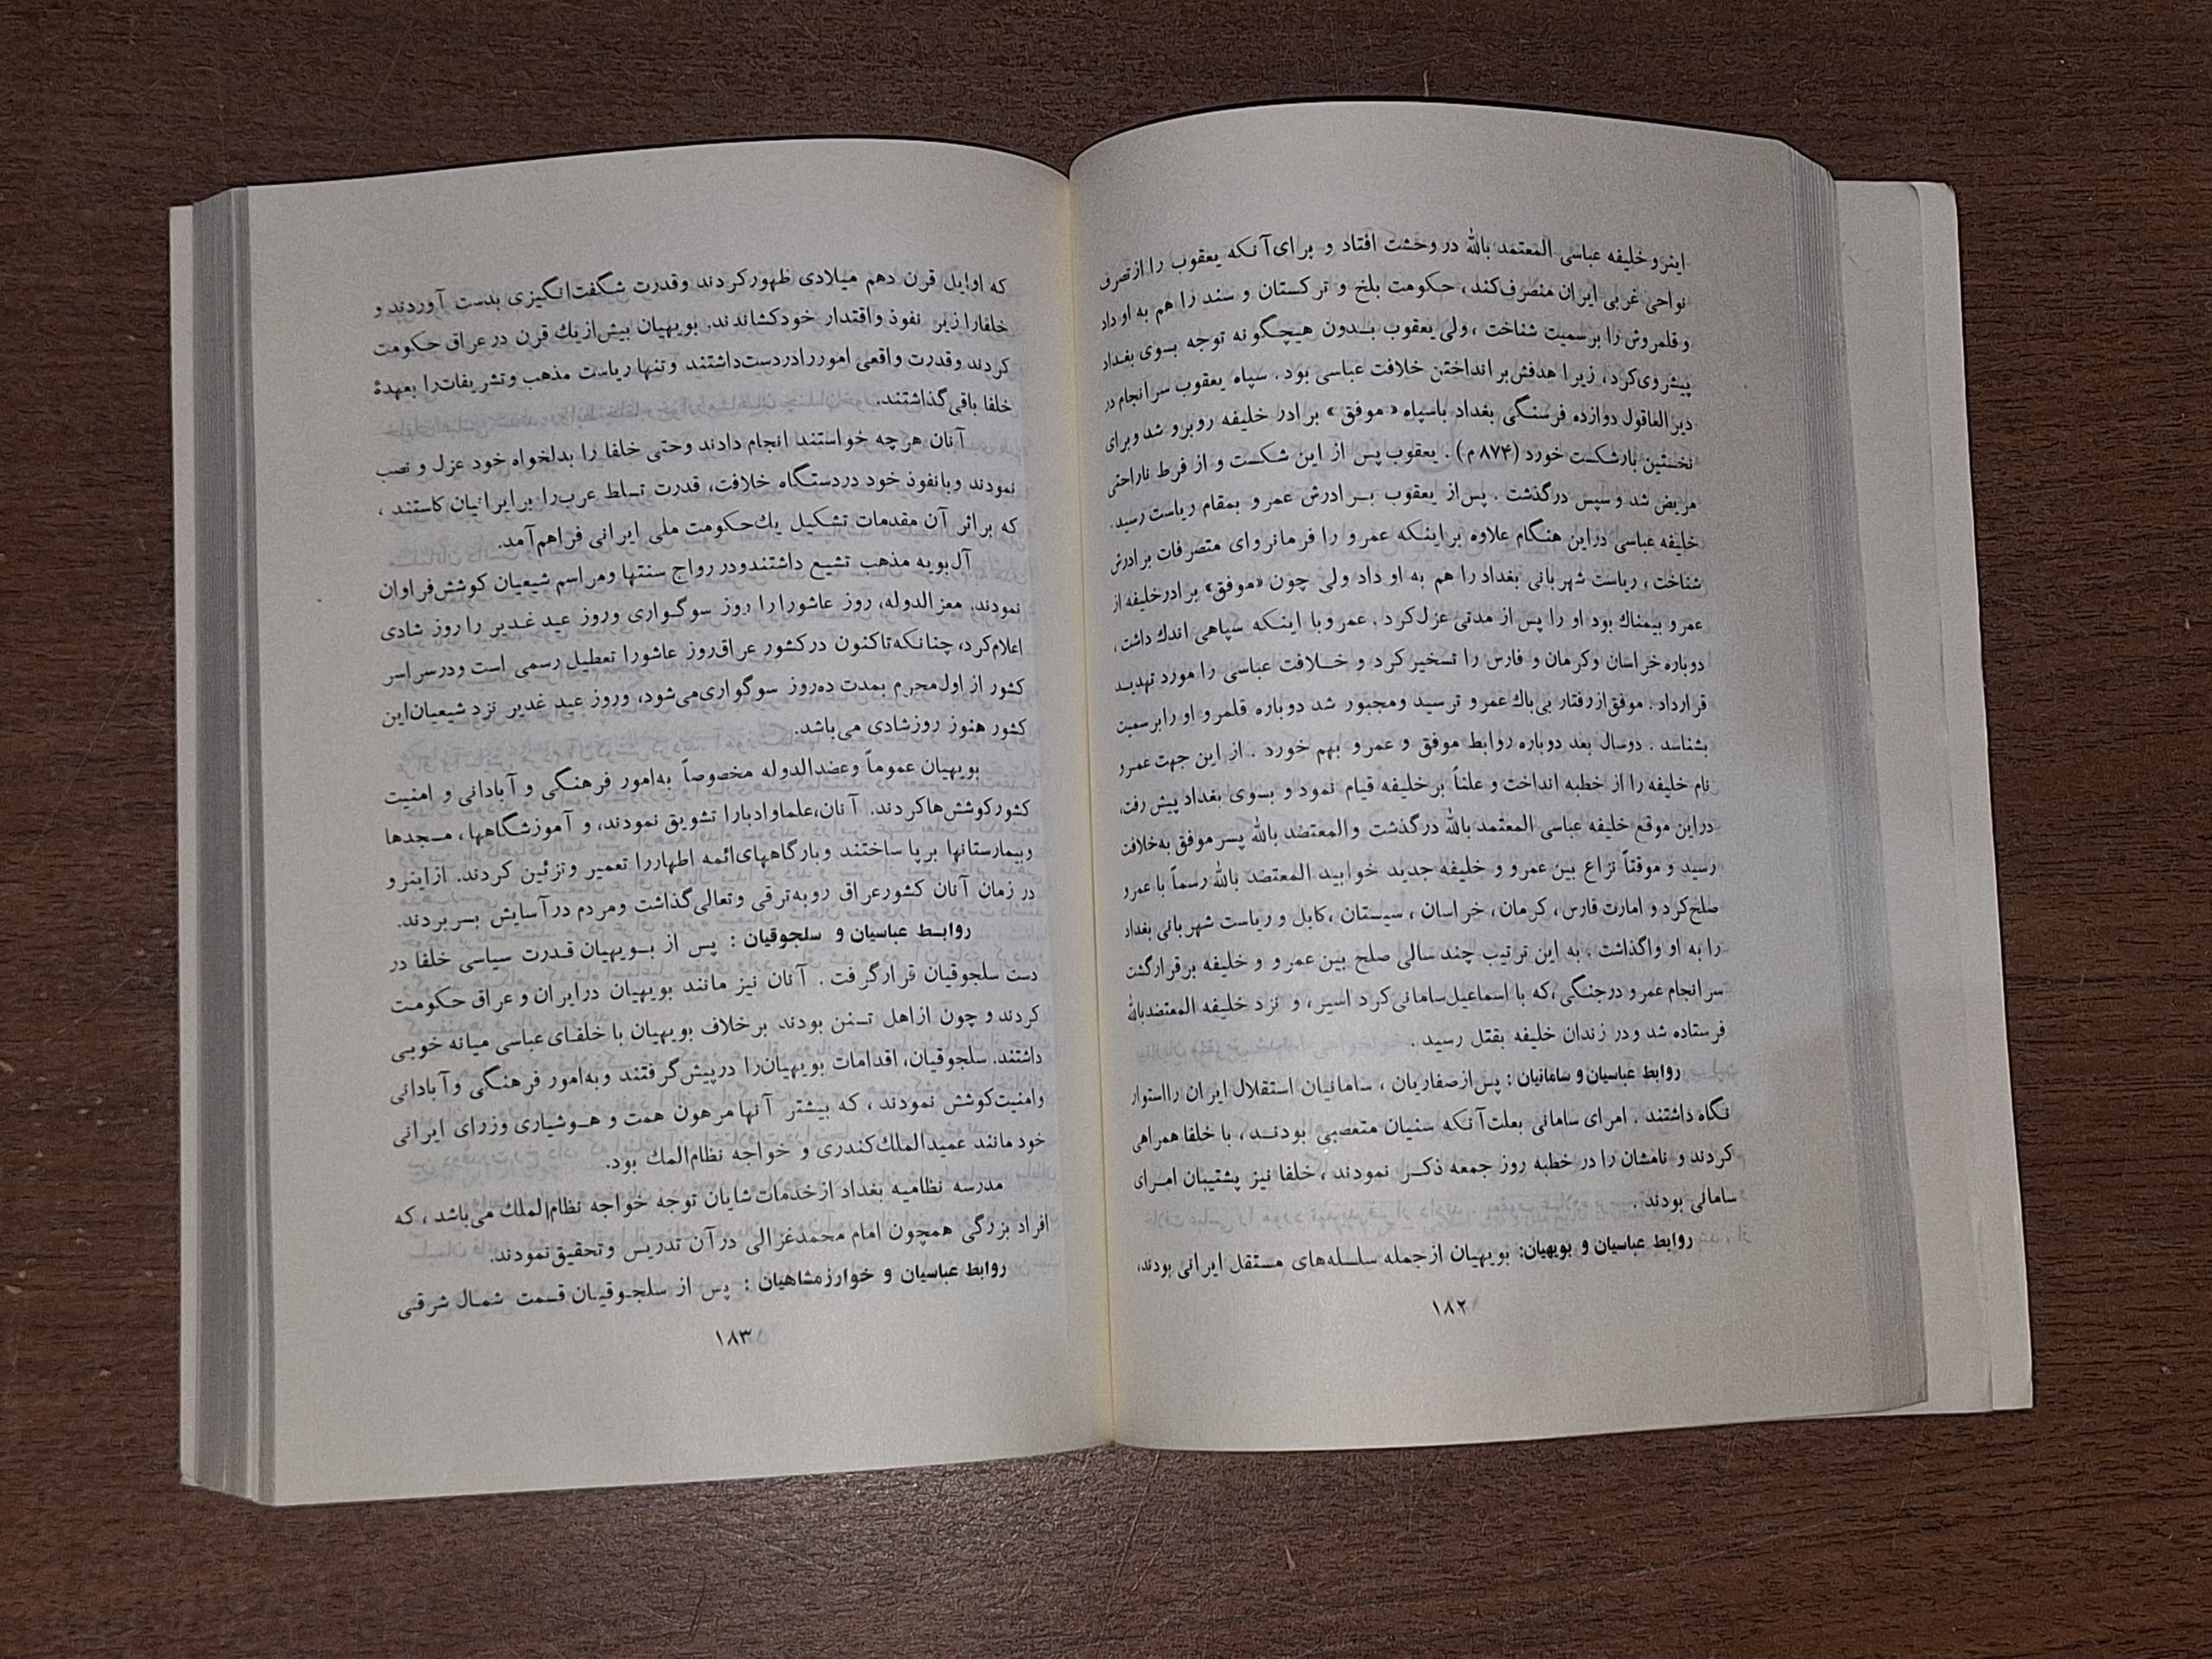 اینرو خلیفه عباسی المعتمد بالله در وحشت افتاد و برای آنکه یعقوب را از تصرف
نواحی غربی ایران منصرف کند، حکومت بلخ و ترکستان و سند را هم به او داد
و قلمروش را برسمیت شناخت ، ولی یعقوب بدون هیچگونه توجه بسوی بغداد
پیشروی کرد، زیرا هدفش برانداختن خلافت عباسی بود . سپاه یعقوب سرانجام در
دیرالعاقول دوازده فرسنگی بغداد باسپاه «موفق» برادر خلیفه روبرو شد و برای
نخستین بار شکست خورد (۸۷۴ م) . یعقوب پس از این شکست و از فرط ناراحتی
مریض شد و سپس درگذشت . پس از یعقوب برادرش عمرو بمقام ریاست رسید.
خلیفه عباسی دراین هنگام علاوه براینکه عمرو را فرمانروای متصرفات برادرش
شناخت ، ریاست شهربانی بغداد را هم به او داد ولی چون «موفق» برادر خلیفه از
عمرو بیمناك بود او را پس از مدتی عزل کرد . عمرو با اینکه سپاهی اندك داشت ،
دوباره خراسان وکرمان و فارس را تسخیر کرد و خلافت عباسی را مورد تهدید
قرار داد . موفق از رفتار بی باك عمرو ترسید ومجبور شد دوباره قلمرو او را برسمیت
بشناسد . دوسال بعد دوباره روابط موفق و عمرو بهم خورد . از این جهت عمرو
نام خلیفه را از خطبه انداخت و علناً برخلیفه قیام نمود و بسوی بغداد پیش رفت،
دراین موقع خلیفه عباسی المعتمد بالله درگذشت والمعتضد بالله پسر موفق به خلافت
رسید و موقتاً نزاع بین عمرو و خلیفه جدید خوابید المعتضد بالله رسماً با عمرو
صلح کرد و امارت فارس، کرمان، خراسان ، سیستان ،کابل و ریاست شهربانی بغداد
را به او واگذاشت . به این ترتیب چند سالی صلح بین عمرو و خلیفه برقرار گشت
سرانجام عمرو درجنگی ،که با اسماعیل سامانی کرد اسیر، و نزد خلیفه المعتضدبالله
فرستاده شد و در زندان خلیفه بقتل رسید .
روابط عباسیان و سامانیان : پس از صفاریان ، سامانیان استقلال ایران را استوار
نگاه داشتند . امرای سامانی بعلت آنکه سنیان متعصبی بودند ، با خلفا همراهی
کردند و نامشان را در خطبه روز جمعه ذکر نمودند ، خلفا نیز پشتیبان امرای
سامانی بودند .
روابط عباسیان و بویهیان: بویهیان ازجمله سلسله‌های مستقل ایرانی بودند،
۱۸۲
که اوایل قرن دهم میلادی ظهورکردند وقدرت شگفت‌انگیزی بدست آوردند و
خلفارا زیر نفوذ واقتدار خودکشاندند. بویهیان بیش‌ازیك قرن درعراق حکومت
کردند وقدرت واقعی امور رادردست‌داشتند وتنها ریاست مذهب وتشریفات‌را بعهدهٔ
خلفا باقی‌گذاشتند.
آنان هرچه خواستند انجام دادند وحتی خلفا را بدلخواه خود عزل و نصب
نمودند وبانفوذ خود دردستگاه خلافت، قدرت تسلط عرب‌را برایرانیان کاستند ،
که براثر آن مقدمات تشکیل یك‌حکومت ملی ایرانی فراهم‌آمد.
آل‌بویه مذهب تشیع داشتندودر رواج سنتها ومراسم شیعیان کوشش‌فراوان
نمودند. معزالدوله، روز عاشورا را روز سوگواری وروز عید غدیر را روز شادی
اعلام‌کرد، چنانکه‌تاکنون درکشور عراق‌روز عاشورا تعطیل رسمی است ودرسراسر
کشور از اول‌محرم بمدت ده‌روز سوگواری‌می‌شود، وروز عید غدیر نزد شیعیان‌این
کشور هنوز روزشادی می‌باشد.
بویهیان عموماً وعضدالدوله مخصوصاً به‌امور فرهنگی و آبادانی و امنیت
کشورکوشش‌هاکردند. آنان،علماوادبارا تشویق نمودند، و آموزشگاهها ، مسجدها
وبیمارستانها برپا ساختند وبارگاههای‌ائمه اطهاررا تعمیر وتزئین کردند. ازاینرو
در زمان آنان کشورعراق روبه‌ترقی وتعالی‌گذاشت ومردم درآسایش بسربردند.
روابط عباسیان و سلجوقیان : پس از بویهیان قدرت سیاسی خلفا در
دست سلجوقیان قرارگرفت . آنان نیز مانند بویهیان درایران و عراق حکومت
کردند و چون ازاهل تسنن بودند برخلاف بویهیان با خلفای عباسی میانه خوبی
داشتند. سلجوقیان، اقدامات بویهیان‌را درپیش‌گرفتند وبه‌امور فرهنگی وآبادانی
وامنیت‌کوشش نمودند ، که بیشتر آنهامرهون همت و هوشیاری وزرای ایرانی
خود مانند عمیدالملك‌کندری و خواجه نظام‌المك بود.
مدرسه نظامیه بغداد ازخدمات‌شایان توجه خواجه نظام‌الملك می‌باشد ، که
افراد بزرگی همچون امام محمدغزالی درآن تدریس وتحقیق‌نمودند.
روابط عباسیان و خوارزمشاهیان : پس از سلجوقیان قسمت شمال شرقی
۱۸۳